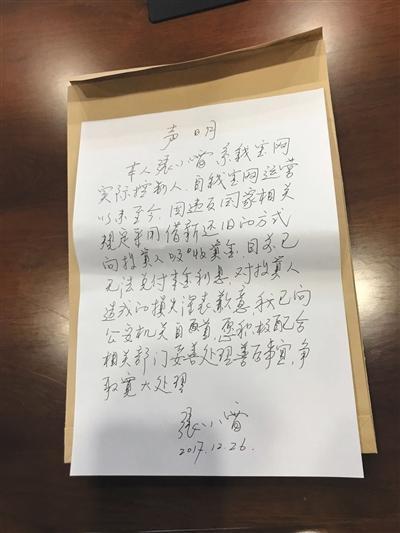 声明
本人张小雷系钱宝网
实际控制人，自钱宝网运营
以来至今，因违反国家相关
规定采用借新还旧的方式
向投资人吸收资金，目前已
无法兑付本金利息，对投资人
造成的损失深表歉意，我已向
公安机关自首，愿积极配合
相关部门妥善处理善后事宜，争
取宽大处理
张小雷
2017.12.26.